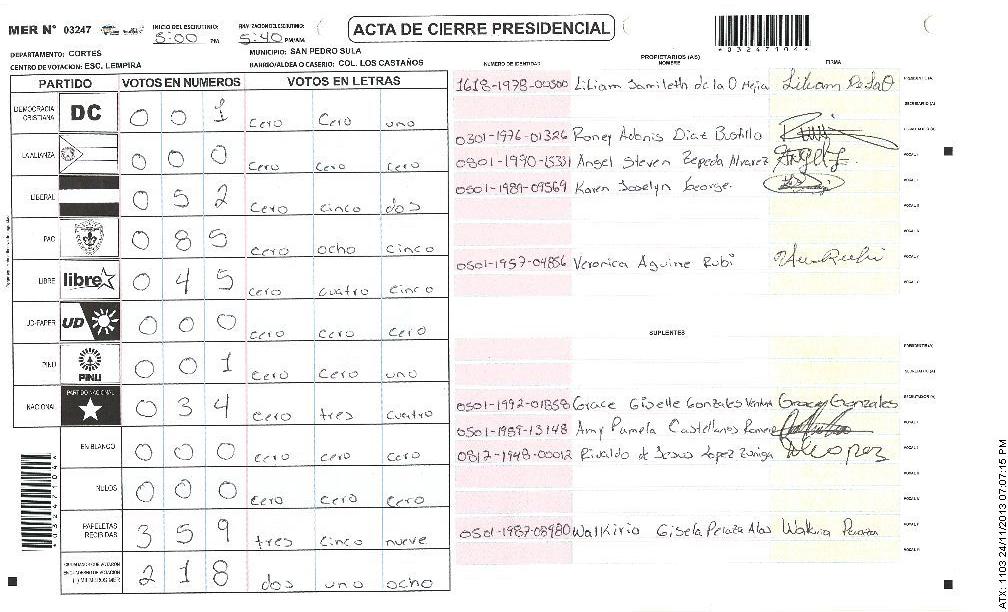 MER N° 03247
INICIO DEL ESCRUTINIO: 5:00 PM
5:40 PM/AM
ACTA DE CIERRE PRESIDENCIAL
03247104
DEPARTAMENTO: CORTES
MUNICIPIO: SAN PEDRO SULA
CENTRO DE VOTACION: ESC. LEMPIRA
BARRIO/ALDEA O CASERIO: COL. LOS CASTAÑOS
PARTIDO VOTOS EN NUMEROS VOTOS EN LETRAS
DEMOCRACIA CRISTIANA DC 0 0 1 cero cero uno
LA ALIANZA 0 0 0 cero cero cero
LIBERAL 0 5 2 cero cinco dos
PAC 0 8 5 cero ocho cinco
LIBRE libre 0 4 5 cero cuatro cinco
UD-FAPER UD 0 0 0 cero cero cero
PINU PINU 0 0 1 cero cero uno
NACIONAL PARTIDO NACIONAL 0 3 4 cero tres cuatro
EN BLANCO 0 0 0 cero cero cero
NULOS 0 0 0 cero cero cero
PAPELETAS RECIBIDAS 3 5 9 tres cinco nueve
2 1 8 dos uno ocho
PROPIETARIOS (AS)
NUMERO DE IDENTIDAD NOMBRE FIRMA
1618-1978-00300 Liliam Samileth de la O Mejia Liliam De La O PRESIDENTE(A)
SECRETARIO (A)
0301-1976-01326 Roney Adonis Diaz Bustillo
0801-1990-15331 Angel Steven Zepeda Alvarez VOCAL I
0501-1989-09569 Karen Joselyn George. VOCAL II
VOCAL III
0501-1957-04856 Veronica Aguirre Rubi VOCAL IV
VOCAL V
SUPLENTES
PRESIDENTE(A)
SECRETARIO (A)
0501-1992-01358 Grace Giselle Gonzales Ventura Grace Gonzales ESCRUTADOR (A)
0501-1989-13148 Amy Pamela Castellanos Romero VOCAL I
0812-1948-00012 Rivaldo de Jesus Lopez Zuniga VOCAL II
VOCAL III
VOCAL IV
0501-1987-08980 Walkiria Gisela Peraza Alas Walkiria Peraza VOCAL V
ATX: 1103 24/11/2013 07:07:15 PM